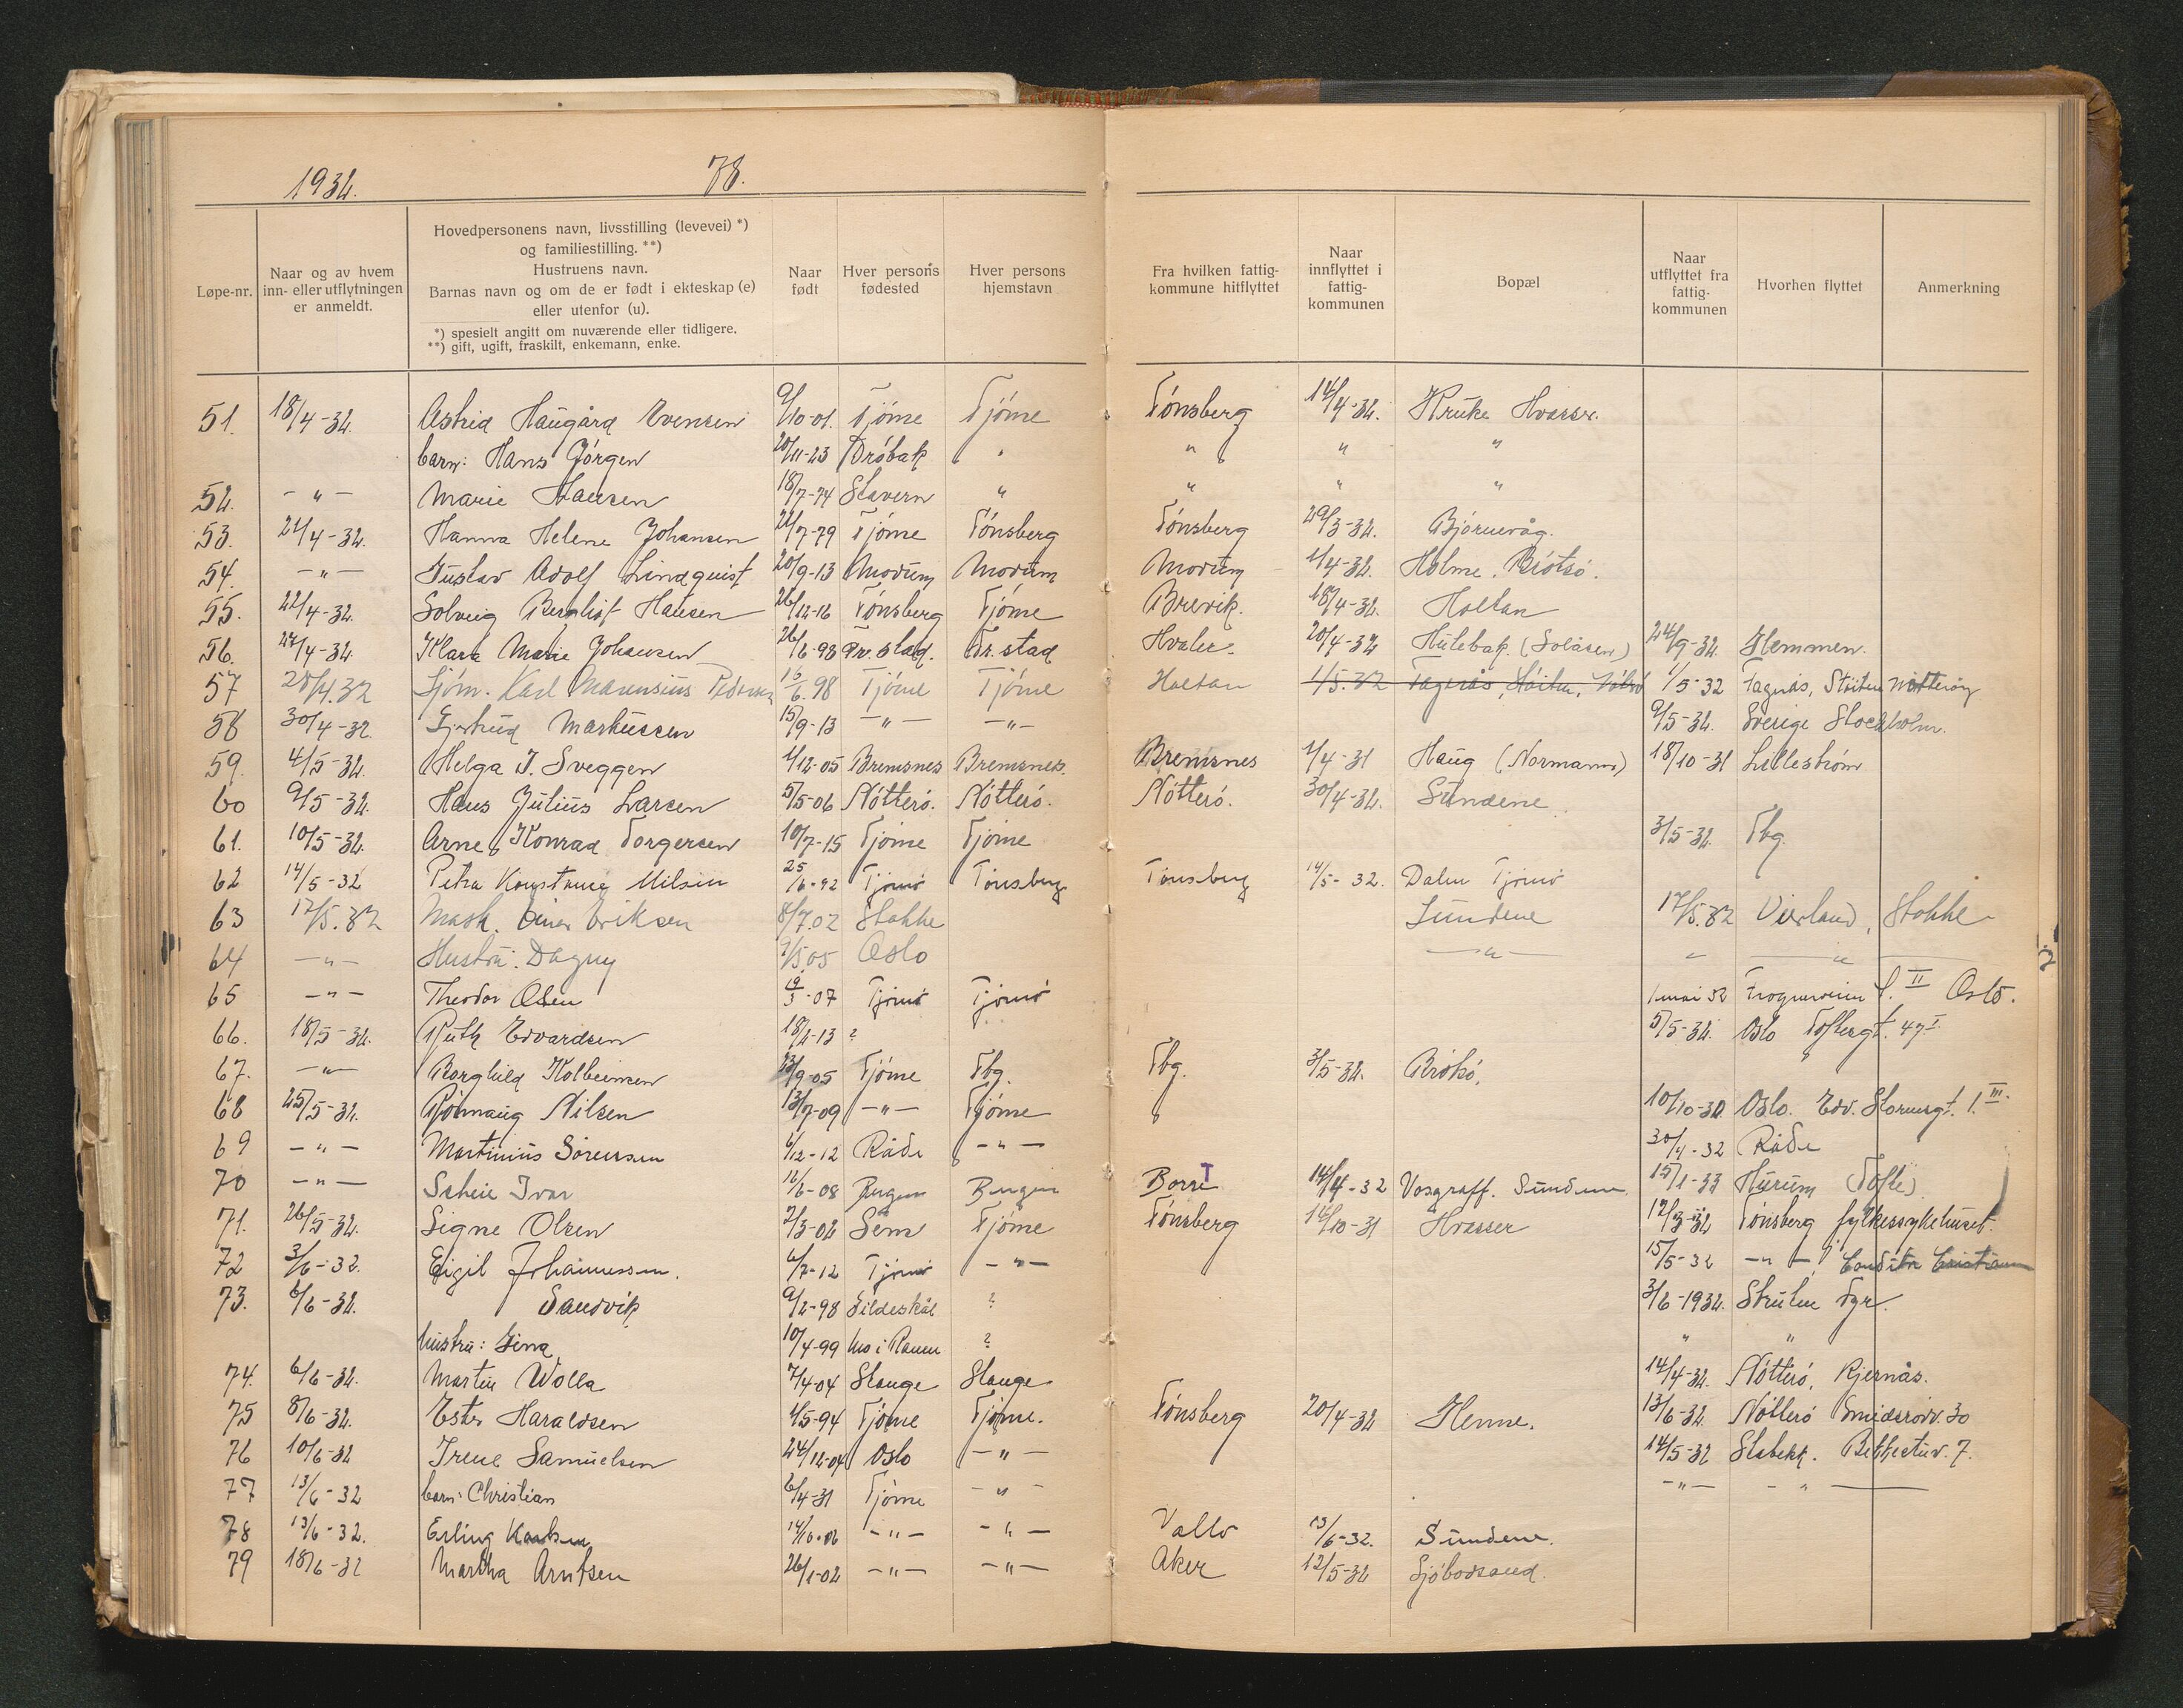 1932.
78.
Løpe-nr.
Naar og av hvem inn- eller utflytningen er anmeldt.
Hovedpersonens navn, livsstilling (levevei) *)
og familiestilling. **)
Hustruens navn.
Barnas navn og om de er født i ekteskap (e)
eller utenfor (u).
*) spesielt angitt om nuværende eller tidligere.
**) gift, ugift, fraskilt, enkemann, enke.
Naar født
Hver persons fødested
Hver persons hjemstavn
Fra hvilken fattig-kommune hitflyttet
Naar innflyttet i fattig-kommunen
Bopæl
Naar utflyttet fra fattig-kommunen
Hvorhen flyttet
Anmerkning
51. 18/4-32. Astrid Haugård Evensen 9/10-01. Tjøme Tjøme Tønsberg 14/4-32. Kruke Hvasser.
barn: Hans Jörgen 20/11-23 Dröbak " " " "
52. -"- Marie Hansen 18/7-74 Stavern " " " "
53. 21/4-32. Hanna Helene Johansen 21/7-79 Tjøme Tønsberg Tønsberg 29/3-32. Bjørnevåg.
54. -"- Gustav Adolf Lindquist 20/9-13 Modum Modum Modum 1/4-32. Holme. Brøtsø.
55. 22/4-32. Solveig Bergliot Hansen 26/12-16 Tønsberg Tjøme Brevik. 18/4-32. Holtan
56. 27/4-32. Klara Marie Johansen 26/6-98 Fr.stad. Fr.stad Hvaler. 20/4-32 Hulebak. (Solåsen) 24/9-32. Glemmen.
57 28/4.32 Sjöm. Karl Marensius Pedersen 15/6.98 Tjöme Tjöme Holtan 1/5.32 Fagerås, 1/5-32 Fagnås, Nötteröy
58 30/4-32. Gjertrud Markussen 15/9-13 -"- -"- 9/5-32. Sverige Stockholm.
59. 4/5-32. Helga J. Sveggen 1/12-05 Bremsnes Bremsnes. Bremsnes 1/4-31 Haug (Normann) 18/10-31 Lillestrøm
60 9/5-32. Hans Julius Larsen 5/5-06 Nötterö. Nötterö. Nötterö. 30/4-32. Sundene
61. 10/5-32. Arne Konrad Torgersen 10/7-15 Tjøme Tjøme 3/5-32. Tbg.
62 14/5-32 Petra Konstance Nilsen 25/6-92 Tjømø Tønsberg Tønsberg 14/5-32. Dalen Tjømø
63 17/5.32 Mask. Einar Eriksen 8/7.02 Stokke Sundene 17/5.32 Vierland, Stokke
64 -"- Hustru: Dagny 2/5 05 Oslo -"- " "
65 -"- Theodor Olsen 19/3-07 Tjømø Tjømø 1 mai 32 II Oslo.
66. 18/5-32. Ruth Edvardsen 18/2-13 ? 5/5-32. Oslo Toftesgt. 47 I
67. -"- Borghild Kolbeinsen 23/9-05 Tjøme Tbg. Tbg. 3/5-32. Brøtsø.
68 25/5-32. Rönnaug Nilsen 13/7-09 -"- Tjøme 10/10-30 Oslo. Edv. Stormsgt. 1. III.
69 -"- Martinius Sørensen 6/12-12 Råde -"- 30/4-32 Råde
70 -"- Scheie Ivar 16/6-08 Bergen Bergen Borre 14/4-32 Vosgraff. Sundene. 15/1-33 Hurum (Tofte)
71. 26/5-32. Signe Olsen 2/3-02 Sem Tjøme Tønsberg 14/10-31 Hvasser 12/3-32 Tønsberg fylkessykehuset.
72 3/6-32. Eigil Johannessen. 6/7-12 Tjømø -"- 15/5-32 -"-
73. 6/6-32. Sandvik 9/2-98 Gildeskål ? 3/6-1932. Struten fyr.
hustru: Gina 10/4-99 Mo i Ranen ? " "
74. 6/6-32. Martin Wolla 7/4-04 Stange Stange 14/4-32. Nötterö, Kjernås.
75 8/6-32. Ester Haraldsen 1/5-94 Tjøme Tjøme. Tønsberg 20/4-32 Glenne. 13/6-32. Nötterö Smidsrödv. 30
76 10/6-32 Irene Samuelsen 24/12-04 Oslo -"- 14/5-32 Stabekk. 7.
77 13/6-32 barn: Christian 6/4-31 Tjöme -"- -"- -"-
78 13/6-32. Erling 14/10-06 -"- -"- Vallø 13/6-32. Sundene.
79 18/6-32 Martha Arntsen 26/1-02 -"- -"- Aker 12/5-32 Sjöbodsand.